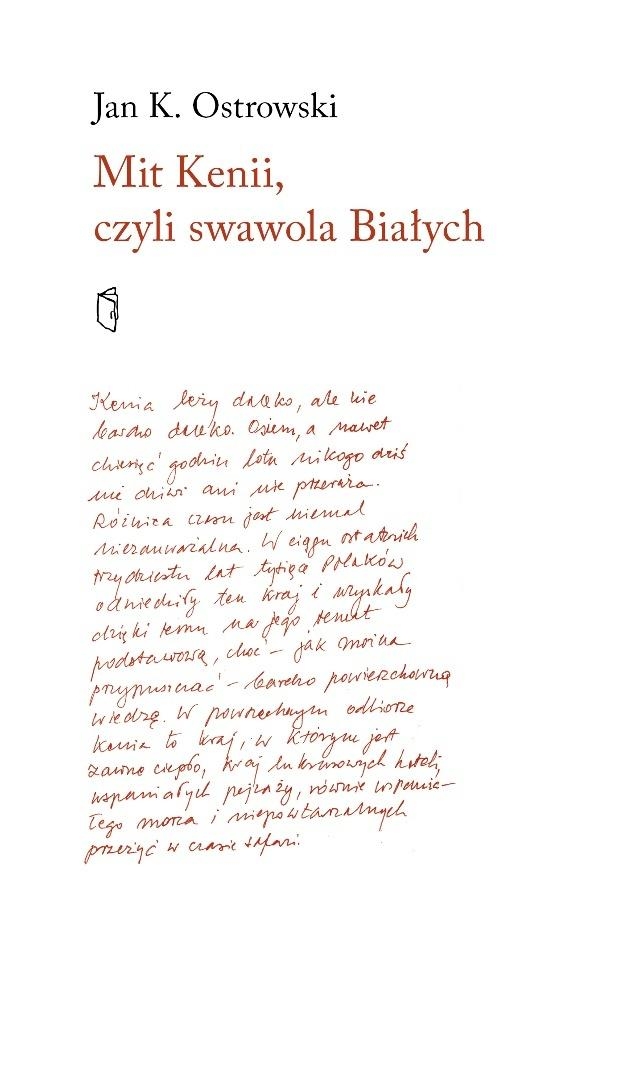 Jan K. Ostrowski
Mit Kenii,
czyli swawola Białych
Kenia leży daleko, ale nie
bardzo daleko. Osiem, a nawet
dziesięć godzin lotu nikogo dziś
nie dziwi ani nie przeraża.
Różnica czasu jest niemal
niezauważalna. W ciągu ostatnich
trzydziestu lat tysiące Polaków
odwiedziły ten kraj i uzyskały
dzięki temu na jego temat
podstawową, choć – jak można
przypuszczać – bardzo powierzchowną
wiedzę. W powszechnym odbiorze
Kenia to kraj, w którym jest
zawsze ciepło, kraj luksusowych hoteli,
wspaniałych pejzaży, równie wspania–
łego morza i niepowtarzalnych
przeżyć w czasie safari.